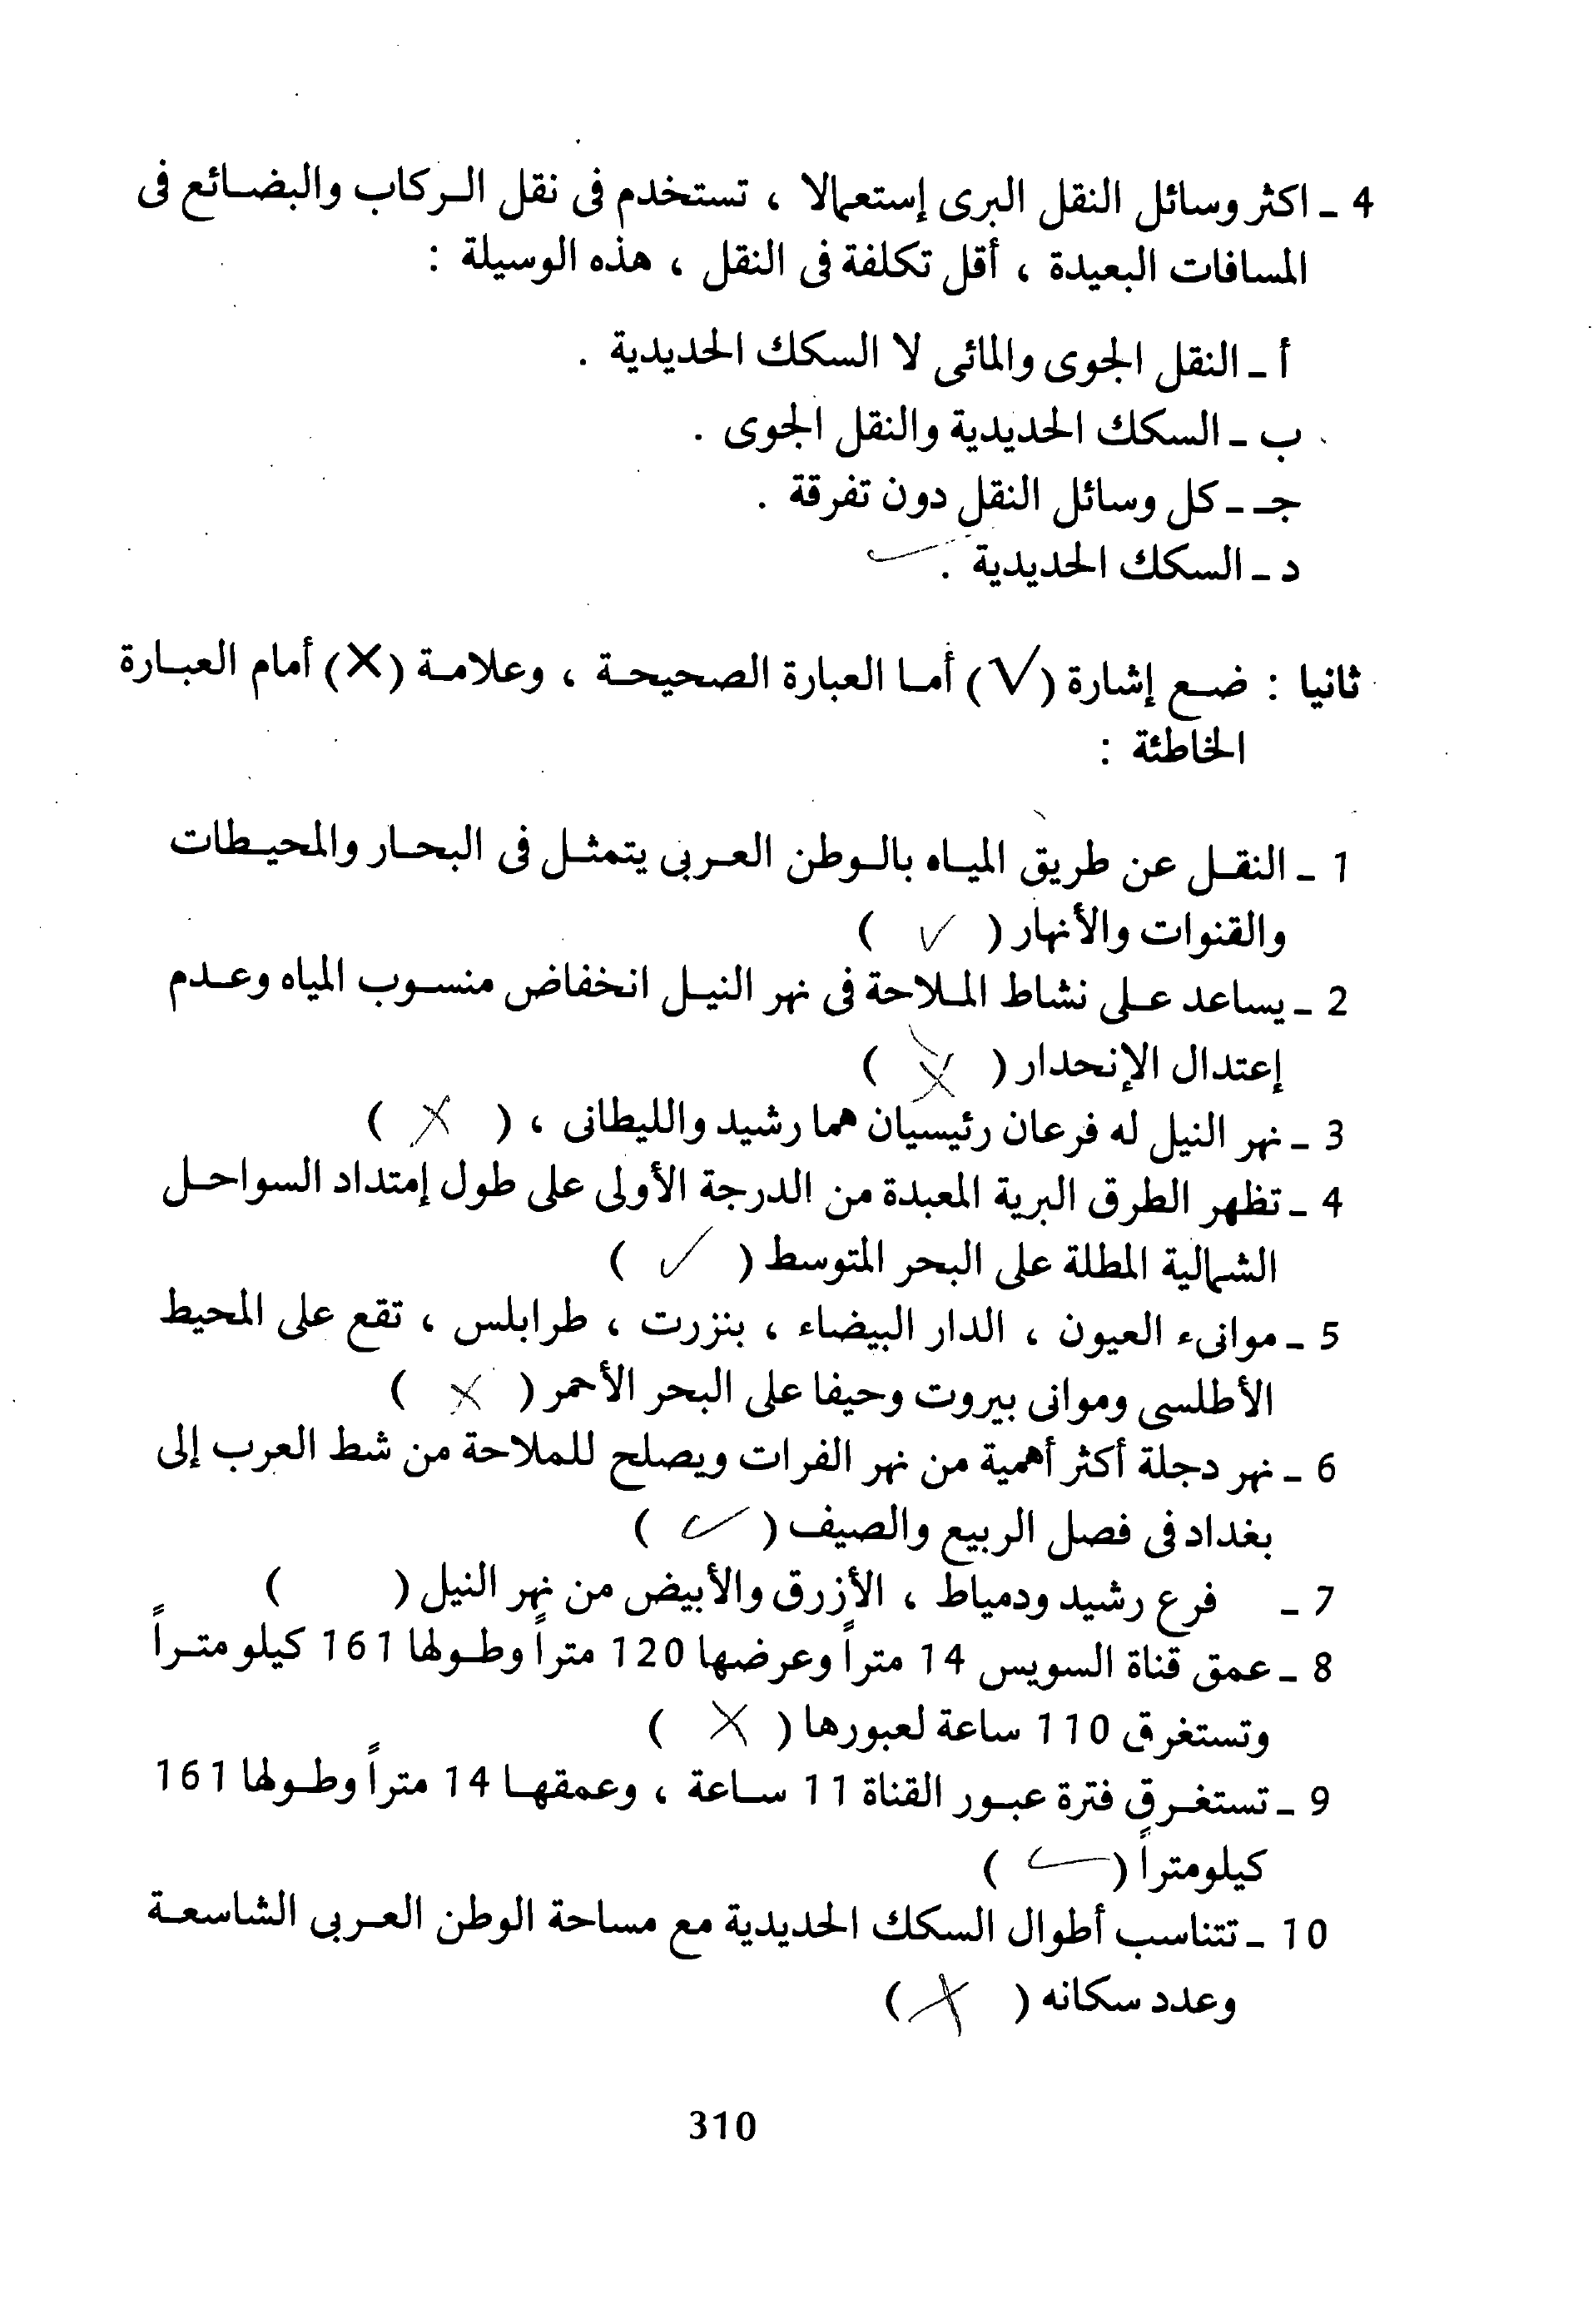 4 ـ اكثر وسائل النقل البرى إستعمالا ، تستخدم فى نقل الـركاب والبضـائع فى
المسافات البعيدة ، أقل تكلفة فى النقل ، هذه الوسيلة :
أ ـ النقل الجوى والمائى لا السكك الحديدية .
ب ـ السكك الحديدية والنقل الجوى .
جـ ـ كل وسائل النقل دون تفرقة .
د ـ السكك الحديدية . ✓
ثانيا : ضـع إشارة (√) أمـا العبارة الصحيحـة ، وعلامـة (X) أمام العبـارة
الخاطئة :
1 ـ النقـل عن طريق الميـاه بالـوطن العـربى يتمثـل فى البحـار والمحيـطات
والقنوات والأنهار ( ✓ )
2 ـ يساعد عـلى نشاط المـلاحة فى نهر النيـل انخفاض منسـوب المياه وعـدم
إعتدال الإنحدار ( X )
3 ـ نهر النيل له فرعان رئيسيان هما رشيد والليطانى ، ( X )
4 ـ تظهر الطرق البرية المعبدة من الدرجة الأولى على طول إمتداد السواحـل
الشمالية المطلة على البحر المتوسط ( ✓ )
5 ـ موانىء العيون ، الدار البيضاء ، بنزرت ، طرابلس ، تقع على المحيط
الأطلسى وموانى بيروت وحيفا على البحر الأحمر ( X )
6 ـ نهر دجلة أكثر أهمية من نهر الفرات ويصلح للملاحة من شط العرب إلى
بغداد فى فصل الربيع والصيف ( ✓ )
7 ـ فرع رشيد ودمياط ، الأزرق والأبيض من نهر النيل ( )
8 ـ عمق قناة السويس 14 متراً وعرضها 120 متراً وطـولها 161 كيلو متـراً
وتستغرق 110 ساعة لعبورها ( X )
9 ـ تستغـرق فترة عبـور القناة 11 سـاعة ، وعمقهـا 14 متراً وطـولها 161
كيلومتراً ( ✓ )
10 ـ تتناسب أطوال السكك الحديدية مع مساحة الوطن العـربى الشاسعـة
وعدد سكانه ( X )
310